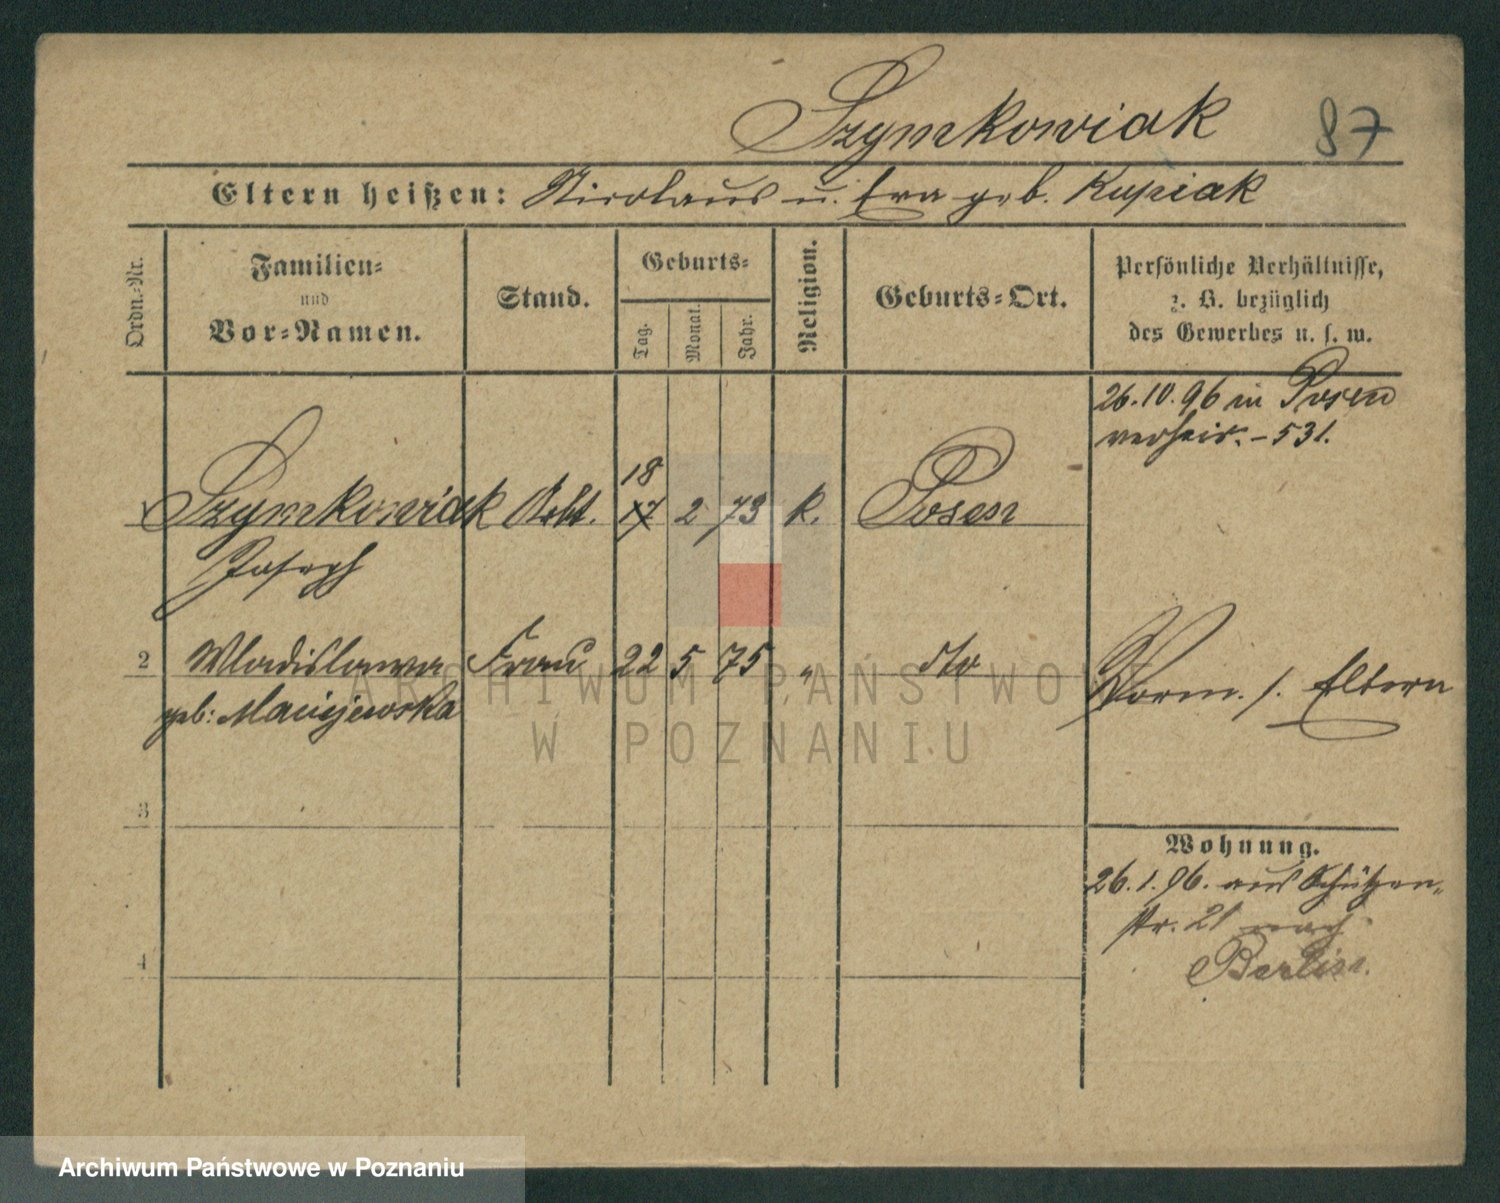 Szymkowiak 87
Eltern heißen: Nicolaus u. Eva geb. Kupiak
Ordn.-Nr.
Familien-
und
Vor-Namen.
Stand.
Geburts-
Tag.
Monat.
Jahr.
Religion.
Geburts-Ort.
Persönliche Verhältnisse,
z. B. bezüglich
des Gewerbes u. s. w.
26.10.96 in Posen
verheir. - 531.
18
Szymkowiak Arbt. 17 2 73 k. Posen
Joseph
2 Wladislawa Frau 22 5 75 " dto
geb: Maciejewska
Vorm. s. Eltern
3
Wohnung.
26.1.96. aus Schützen-
str. 21 nach
Berlin.
4
ARCHIWUM PAŃSTWOWE
W POZNANIU
Archiwum Państwowe w Poznaniu